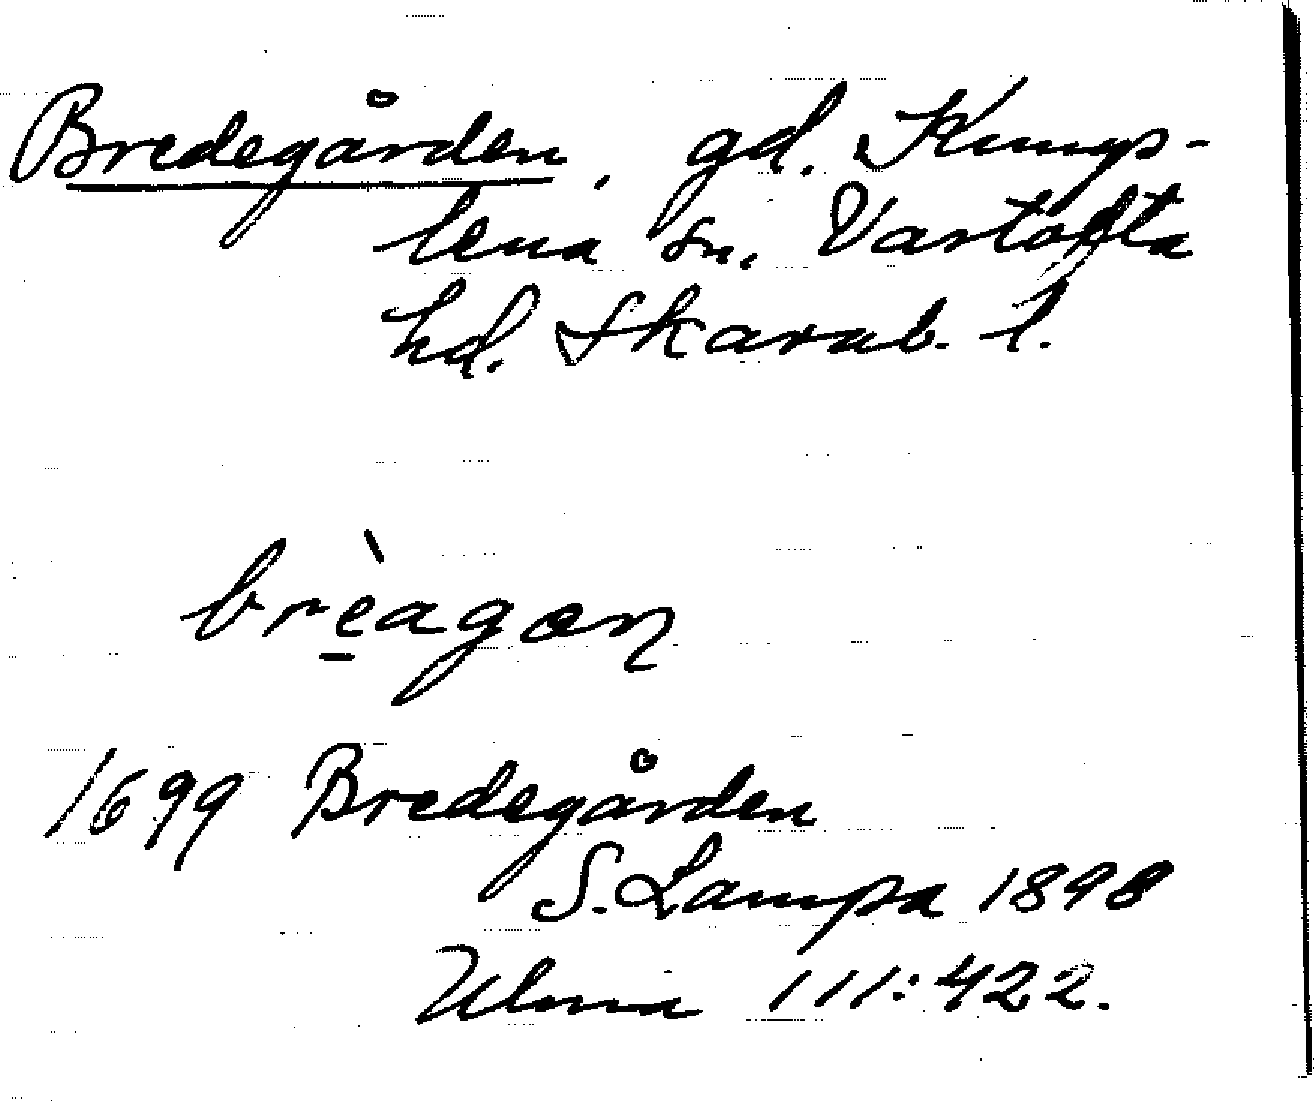 Bredegården, gd. Kungs-
lena sn. Vartofta
hd. Skarab. l.
brèagan
1699 Bredegården
S. Lampa 1898
Ulma 111:422.